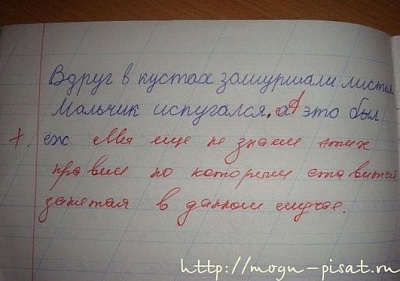 Вдруг в кустах зашуршали листья
Мальчик испугался. А это был
ёж Мы еще не знаем этих
правил по которым ставится
запятая в данном случае.
http://mogu-pisat.ru